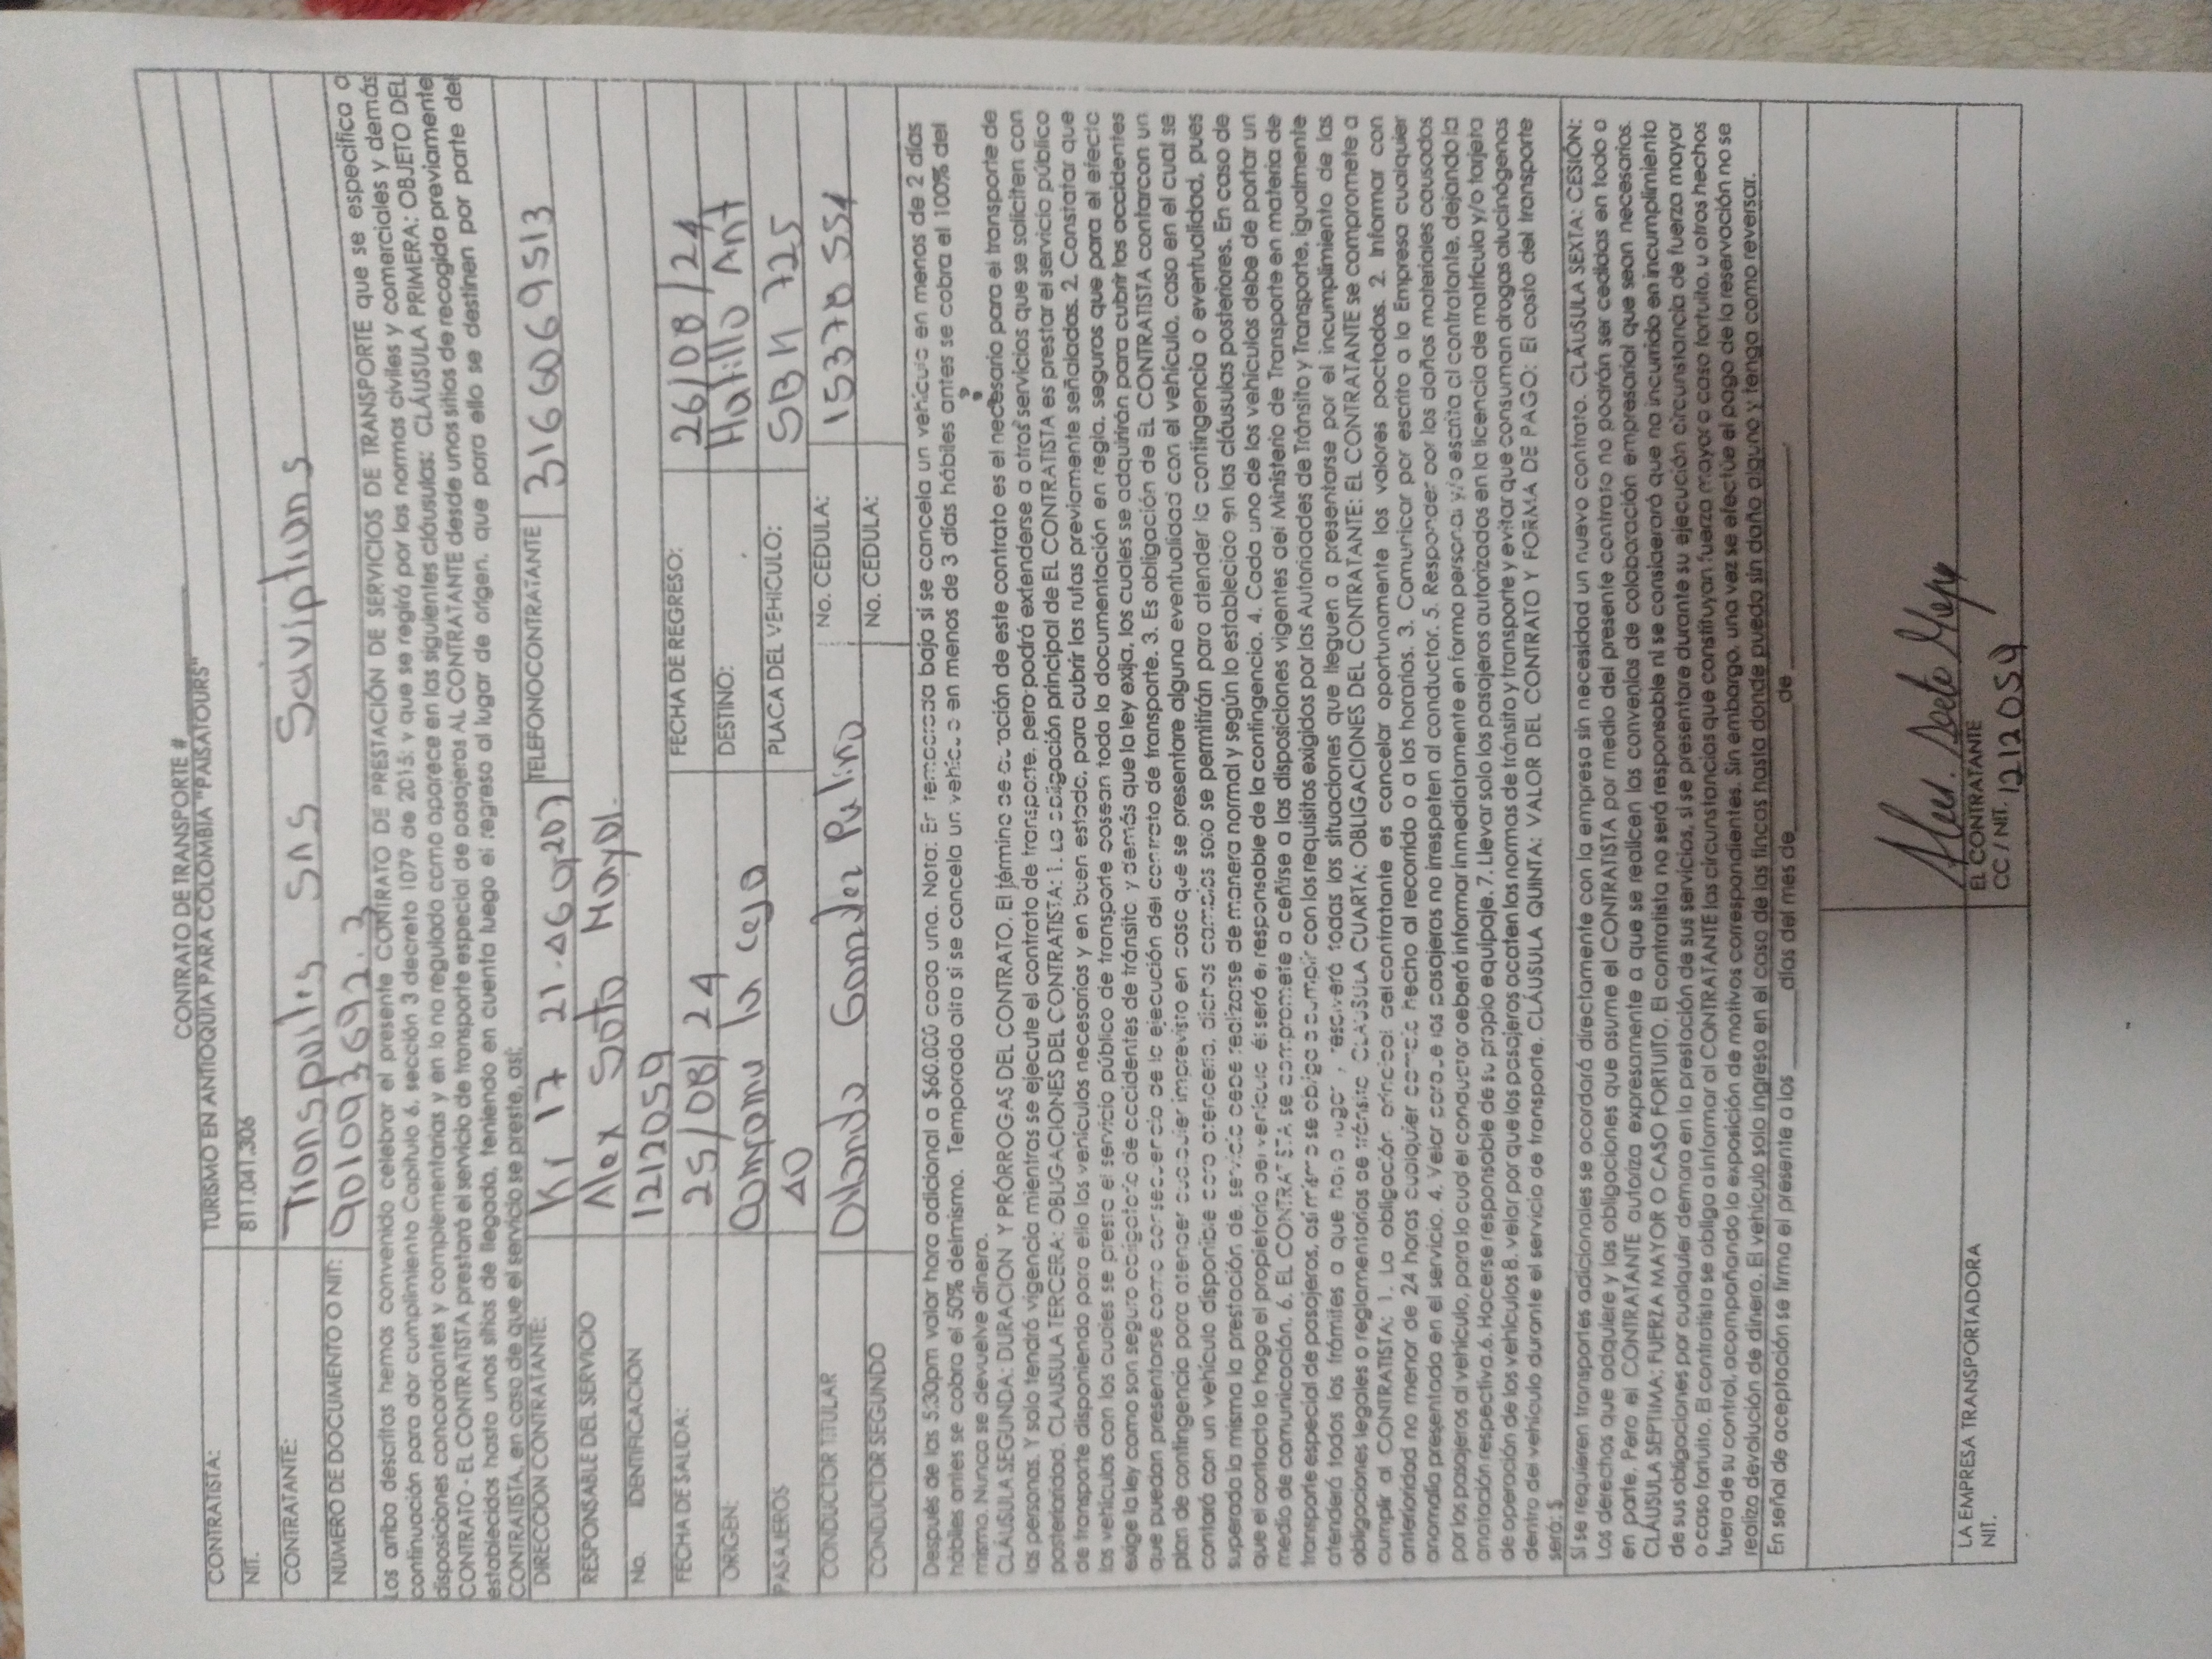 CONTRATO DE TRANSPORTE #
CONTRATISTA: TURISMO EN ANTIOQUIA PARA COLOMBIA "PAISATOURS"
NIT. 811.041.306
CONTRATANTE: Transpaites SAS
NÚMERO DE DOCUMENTO O NIT: 901093692.3
Los arriba descritos hemos convenido celebrar el presente CONTRATO DE PRESTACIÓN DE SERVICIOS DE TRANSPORTE que se especifica a
continuación para dar cumplimiento Capitulo 6, sección 3 decreto 1079 de 2015; y que se regirá por las normas civiles y comerciales y demás
disposiciones concordantes y complementarias y en lo no regulado como aparece en las siguientes cláusulas: CLÁUSULA PRIMERA: OBJETO DEL
CONTRATO - EL CONTRATISTA prestará el servicio de transporte especial de pasajeros AL CONTRATANTE desde unos sitios de recogida previamente
establecidos hasta unos sitios de llegada, teniendo en cuenta luego el regreso al lugar de origen, que para ello se destinen por parte del
CONTRATISTA, en caso de que el servicio se preste, así:
DIRECCION CONTRATANTE: Kr 17 21-46 TELEFONOCONTRATANTE 316069513
RESPONSABLE DEL SERVICIO Alex Soto
No. IDENTIFICACION 1212059
FECHA DE SALIDA: 25/08/24 FECHA DE REGRESO: 26/08/24
ORIGEN: la ceja DESTINO: Hatillo Ant
PASAJEROS 40 PLACA DEL VEHICULO: 725
CONDUCTOR TITULAR Orlando Gonzalez Patiño No. CEDULA: 15378554
CONDUCTOR SEGUNDO No. CEDULA:
Después de las 5:30pm valor hora adicional a $60.000 cada una. Nota: En temporada baja si se cancela un vehículo en menos de 2 días
hábiles antes se cobra el 50% del mismo. Temporada alta si se cancela un vehículo en menos de 3 días hábiles antes se cobra el 100% del
mismo. Nunca se devuelve dinero.
CLÁUSULA SEGUNDA: DURACION Y PRÓRROGAS DEL CONTRATO. El término de duración de este contrato es el necesario para el transporte de
las personas. Y solo tendrá vigencia mientras se ejecute el contrato de transporte, pero podrá extenderse a otros servicios que se soliciten con
posterioridad. CLAUSULA TERCERA: OBLIGACIONES DEL CONTRATISTA: 1. La obligación principal de EL CONTRATISTA es prestar el servicio público
de transporte disponiendo para ello los vehículos necesarios y en buen estado, para cubrir las rutas previamente señaladas. 2. Constatar que
los vehículos con los cuales se presta el servicio público de transporte posean toda la documentación en regla, seguros que para el efecto
exige la ley como son seguro obligatorio de accidentes de tránsito y demás que la ley exija, los cuales se adquirirán para cubrir los accidentes
que puedan presentarse como consecuencia de la ejecución del contrato de transporte. 3. Es obligación de EL CONTRATISTA contar con un
plan de contingencia para atender cualquier imprevisto en caso que se presentare alguna eventualidad con el vehículo, caso en el cual se
contará con un vehículo disponible para atenderla, dichos cambios solo se permitirán para atender la contingencia o eventualidad, pues
superada la misma la prestación del servicio debe realizarse de manera normal y según lo establecido en las cláusulas posteriores. En caso de
que el contacto lo haga el propietario del vehículo él será el responsable de la contingencia. 4. Cada uno de los vehículos debe de portar un
medio de comunicación. 6. EL CONTRATISTA se compromete a ceñirse a las disposiciones vigentes del Ministerio de Transporte en materia de
transporte especial de pasajeros, así mismo se obliga a cumplir con los requisitos exigidos por las Autoridades de Tránsito y Transporte, igualmente
atenderá todos los trámites a que haya lugar y resolverá todas las situaciones que lleguen a presentarse por el incumplimiento de las
obligaciones legales o reglamentarias de tránsito. CLAUSULA CUARTA: OBLIGACIONES DEL CONTRATANTE: EL CONTRATANTE se compromete a
cumplir al CONTRATISTA: 1. La obligación principal del contratante es cancelar oportunamente los valores pactados. 2. Informar con
anterioridad no menor de 24 horas cualquier cambio hecho al recorrido o a los horarios. 3. Comunicar por escrito a la Empresa cualquier
anomalía presentada en el servicio. 4. Velar porque los pasajeros no irrespeten al conductor. 5. Responder por los daños materiales causados
por los pasajeros al vehículo, para lo cual el conductor deberá informar inmediatamente en forma personal y/o escrita al contratante, dejando la
anotación respectiva.6. Hacerse responsable de su propio equipaje. 7. Llevar solo los pasajeros autorizados en la licencia de matrícula y/o tarjeta
de operación de los vehículos 8. velar por que los pasajeros acaten las normas de tránsito y transporte y evitar que consuman drogas alucinógenas
dentro del vehículo durante el servicio de transporte. CLÁUSULA QUINTA: VALOR DEL CONTRATO Y FORMA DE PAGO: El costo del transporte
será: $
Si se requieren transportes adicionales se acordará directamente con la empresa sin necesidad un nuevo contrato. CLÁUSULA SEXTA: CESIÓN:
Los derechos que adquiere y las obligaciones que asume el CONTRATISTA por medio del presente contrato no podrán ser cedidas en todo o
en parte. Pero el CONTRATANTE autoriza expresamente a que se realicen los convenios de colaboración empresarial que sean necesarios.
CLÁUSULA SEPTIMA: FUERZA MAYOR O CASO FORTUITO. El contratista no será responsable ni se considerará que ha incurrido en incumplimiento
de sus obligaciones por cualquier demora en la prestación de sus servicios, si se presentare durante su ejecución circunstancia de fuerza mayor
o caso fortuito. El contratista se obliga a informar al CONTRATANTE las circunstancias que constituyan fuerza mayor o caso fortuito, u otros hechos
fuera de su control, acompañando la exposición de motivos correspondientes. Sin embargo, una vez se efectúe el pago de la reservación no se
realiza devolución de dinero. El vehículo solo ingresa en el caso de las fincas hasta donde pueda sin daño alguno y tenga como reversar.
En señal de aceptación se firma el presente a los ______ días del mes de ______ de ______.
LA EMPRESA TRANSPORTADORA EL CONTRATANTE
NIT. CC / NIT. 1212059